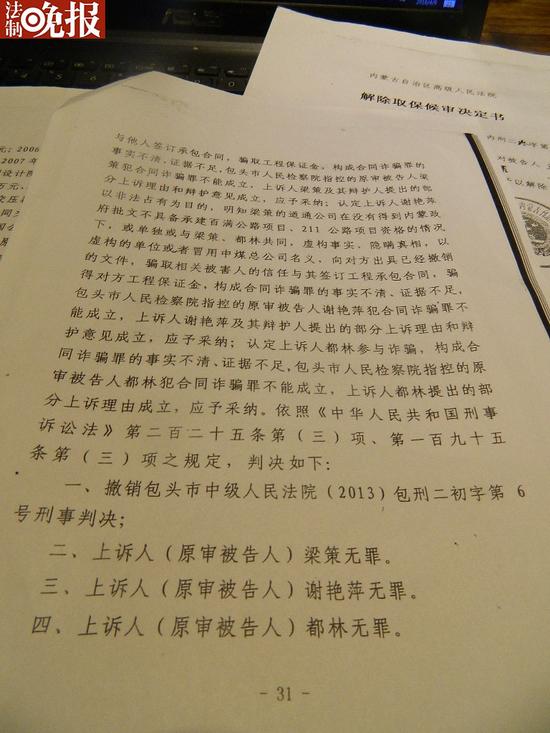 法制晚报
内蒙古自治区高级人民法院
解除取保候审决定书
与他人签订承包合同，骗取工程保证金，构成合同诈骗罪的
事实不清、证据不足，包头市人民检察院指控的原审被告人梁
策犯合同诈骗罪不能成立，上诉人梁策及其辩护人提出的部
分上诉理由和辩护意见成立，应予采纳；认定上诉人谢艳萍
以非法占有为目的，明知梁策的道通公司在没有得到内蒙政
府批文不具备承建百满公路项目、211公路项目资格的情况
下，或单独或与梁策、都林共同，虚构事实，隐瞒真相，以
虚构的单位或者冒用中煤总公司名义，向对方出具已经撤销
的文件，骗取相关被害人的信任与其签订工程承包合同，骗
得对方工程保证金，构成合同诈骗罪的事实不清、证据不足，
包头市人民检察院指控的原审被告人谢艳萍犯合同诈骗罪不
能成立，上诉人谢艳萍及其辩护人提出的部分上诉理由和辩
护意见成立，应予采纳；认定上诉人都林参与诈骗，构成合
同诈骗罪的事实不清、证据不足，包头市人民检察院指控的原
审被告人都林犯合同诈骗罪不能成立，上诉人都林提出的部
分上诉理由成立，应予采纳。依照《中华人民共和国刑事
诉讼法》第二百二十五条第（三）项、第一百九十五
条第（三）项之规定，判决如下：
一、撤销包头市中级人民法院（2013）包刑二初字第6
号刑事判决；
二、上诉人（原审被告人）梁策无罪。
三、上诉人（原审被告人）谢艳萍无罪。
四、上诉人（原审被告人）都林无罪。
- 31 -